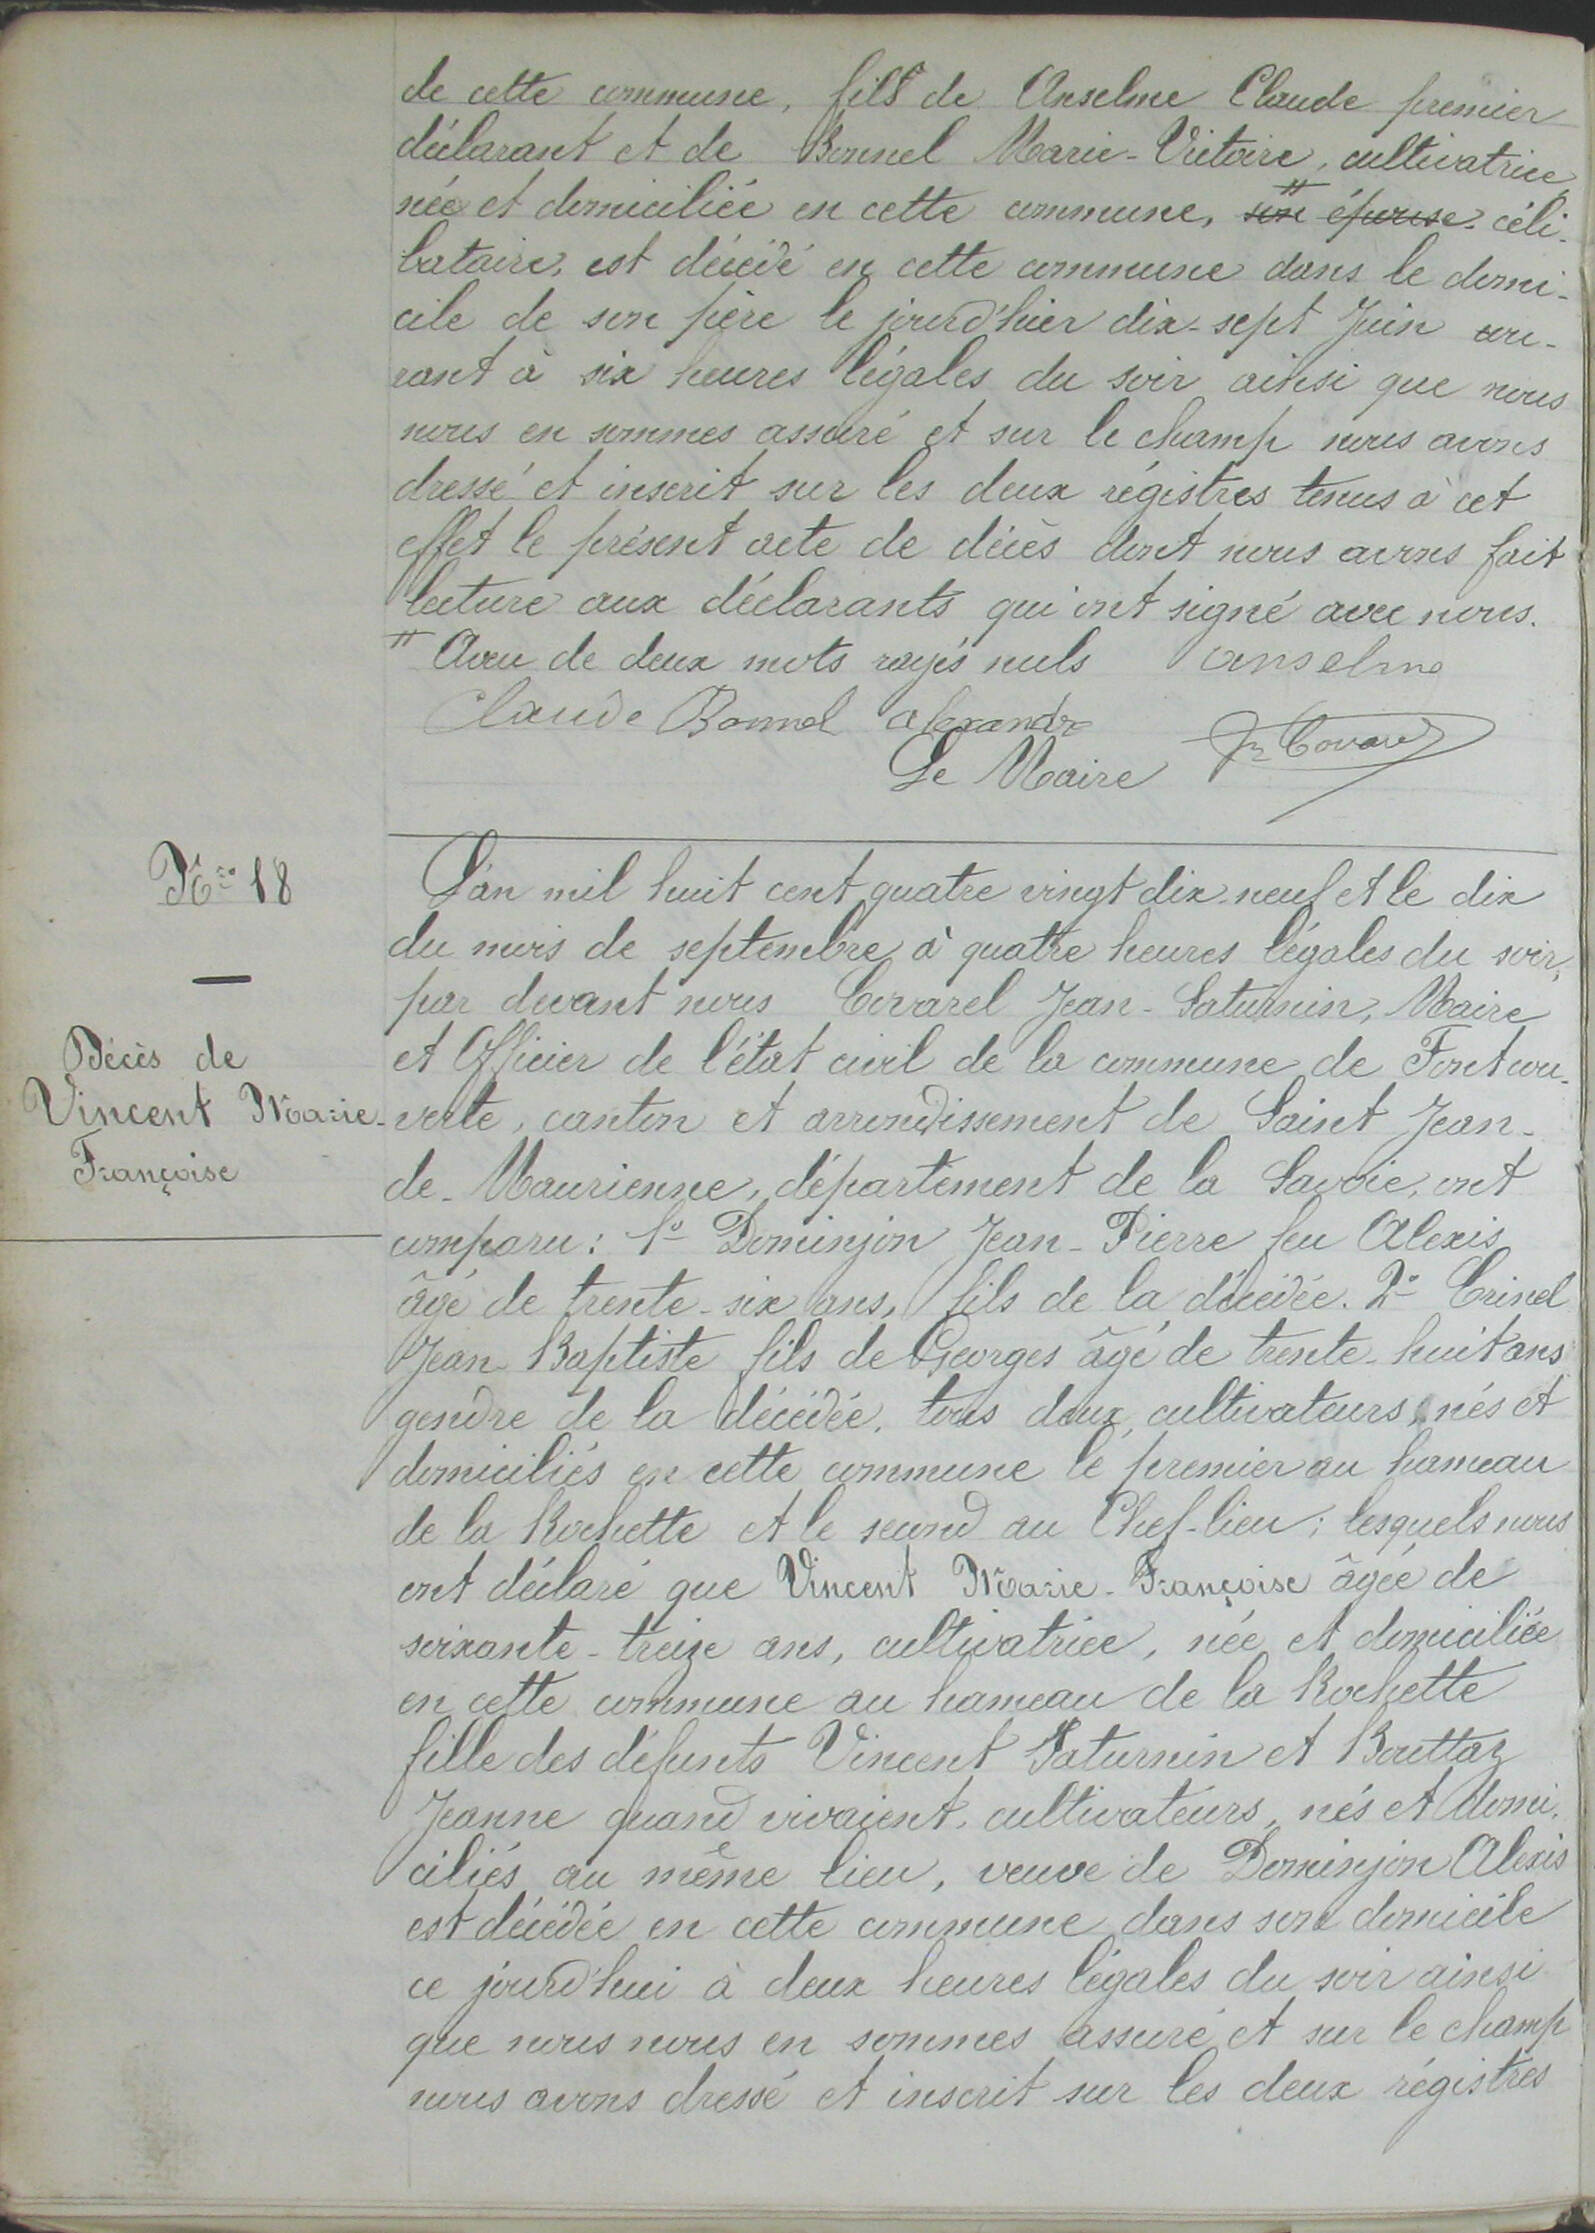 de cette commune, fils de Anselme Claude premier
déclarant et de Bonnel Marie-Victoire, cultivatrice,
née et domiciliée en cette commune, son épouse. céli-
bataire, est décédé en cette commune dans le domi-
cile de son père le jourd'hier dix-sept Juin cou-
rant à six heures légales du soir ainsi que nous
nous en sommes assuré et sur le champ nous avons
dressé et inscrit sur les deux régistres tenus à cet
effet le présent acte de décès dont nous avons fait
lecture aux déclarants qui ont signé avec nous.
" Aveu de deux mots rayés nuls anselme
Claude Bonnel alexandre
Le Maire
Nro 18
Décès de
Vincent Marie-
Françoise
L'an mil huit cent quatre vingt dix-neuf et le dix
du mois de septembre à quatre heures légales du soir,
par devant nous Covarel Jean-Saturnin, Maire
et Officier de l'état civil de la commune de Fontcou-
verte, canton et arrondissement de Saint Jean-
de-Maurienne, département de la Savoie, ont
comparu: 1º Dominjon Jean-Pierre feu Alexis
âgé de trente-six ans, fils de la décédée. 2º Crinel
Jean Baptiste fils de Georges âgé de trente-huit ans
gendre de la décédée, tous deux, cultivateurs, nés et
domiciliés en cette commune le premier au hameau
de la Rochette et le second au Chef-lieu; lesquels nous
ont déclaré que Vincent Marie-Françoise âgée de
soixante-treize ans, cultivatrice, née et domiciliée
en cette commune au hameau de la Rochette
fille des défunts Vincent Saturnin et Bouttaz
Jeanne quand vivaient, cultivateurs, nés et domi-
ciliés au même lieu, veuve de Dominjon Alexis
est décédée en cette commune dans son domicile
ce jourd'hui à deux heures légales du soir ainsi
que nous nous en sommes assuré et sur le champ
nous avons dressé et inscrit sur les deux régistres